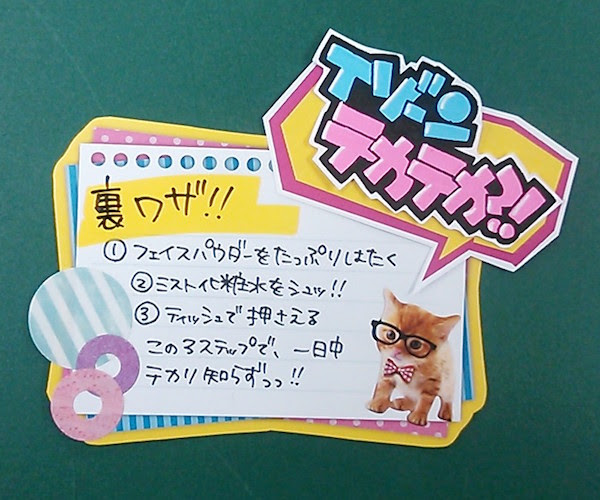 Tゾーン
テカテカ?!
裏ワザ!!
① フェイスパウダーをたっぷりはたく
② ミスト化粧水をシュッ!!
③ ティッシュで押さえる
この3ステップで、一日中
テカリ知らずっっ!!